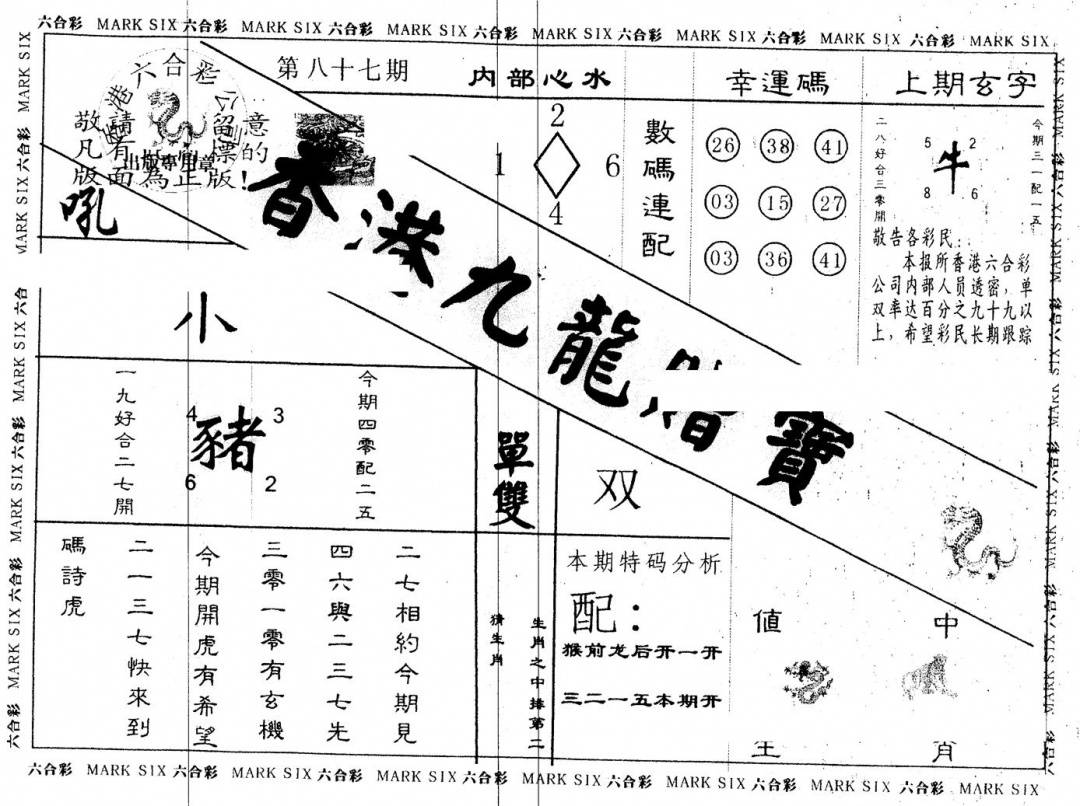 六合彩 MARK SIX 六合彩 MARK SIX 六合彩 MARK SIX 六合彩 MARK SIX 六合彩 MARK SIX 六合彩 MARK SIX 六合彩 MARK SIX
第八十七期
内部心水
幸運碼
上期玄字
六合彩
敬請留意
凡有標的
版面為正版!
出版專用章
吼
香港九龍
寶
2
1
6
4
數碼連配
26 38 41
03 15 27
03 36 41
二八好合三零開
5 2
牛
8 6
今期三一配一五
敬告各彩民:
本报所香港六合彩
公司内部人员透密,单
双率达百分之九十九以
上,希望彩民长期跟踪
小
一九好合二七開
4 3
豬
6 2
今期四零配二五
單雙
双
碼詩虎
二一三七快來到
今期開虎有希望
三零一零有玄機
四六與二三七先
二七相約今期見
猜生肖
生肖之中排第二
本期特码分析
配:
猴前龙后开一开
三二一五本期开
値 中
王 肖
六合彩 MARK SIX 六合彩 MARK SIX 六合彩 MARK SIX 六合彩 MARK SIX 六合彩 MARK SIX 六合彩 MARK SIX 六合彩 MARK SIX